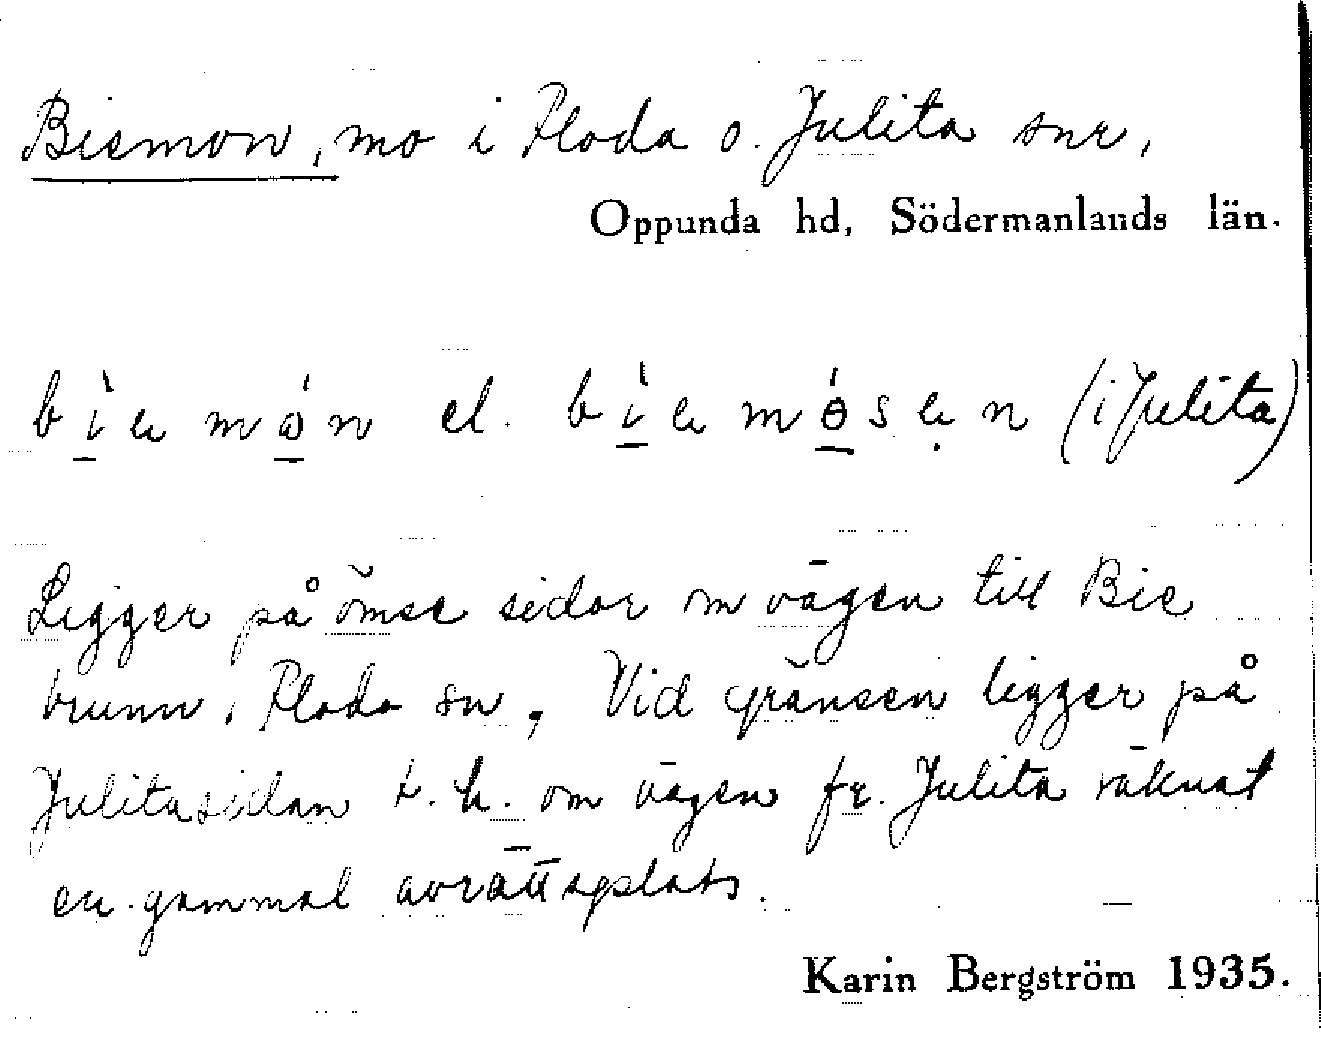 Biemon, mo i Floda o. Julita snr,
Oppunda hd, Södermanlands län.
b ì e m ó n el. b ì e m ó s e n (i Julita)
Ligger på ömse sidor om vägen till Bie
brunn i Floda sn. Vid gränsen ligger på
Julitasidan t. h. om vägen fr. Julita räknat
en gammal avrättsplats.
Karin Bergström 1935.